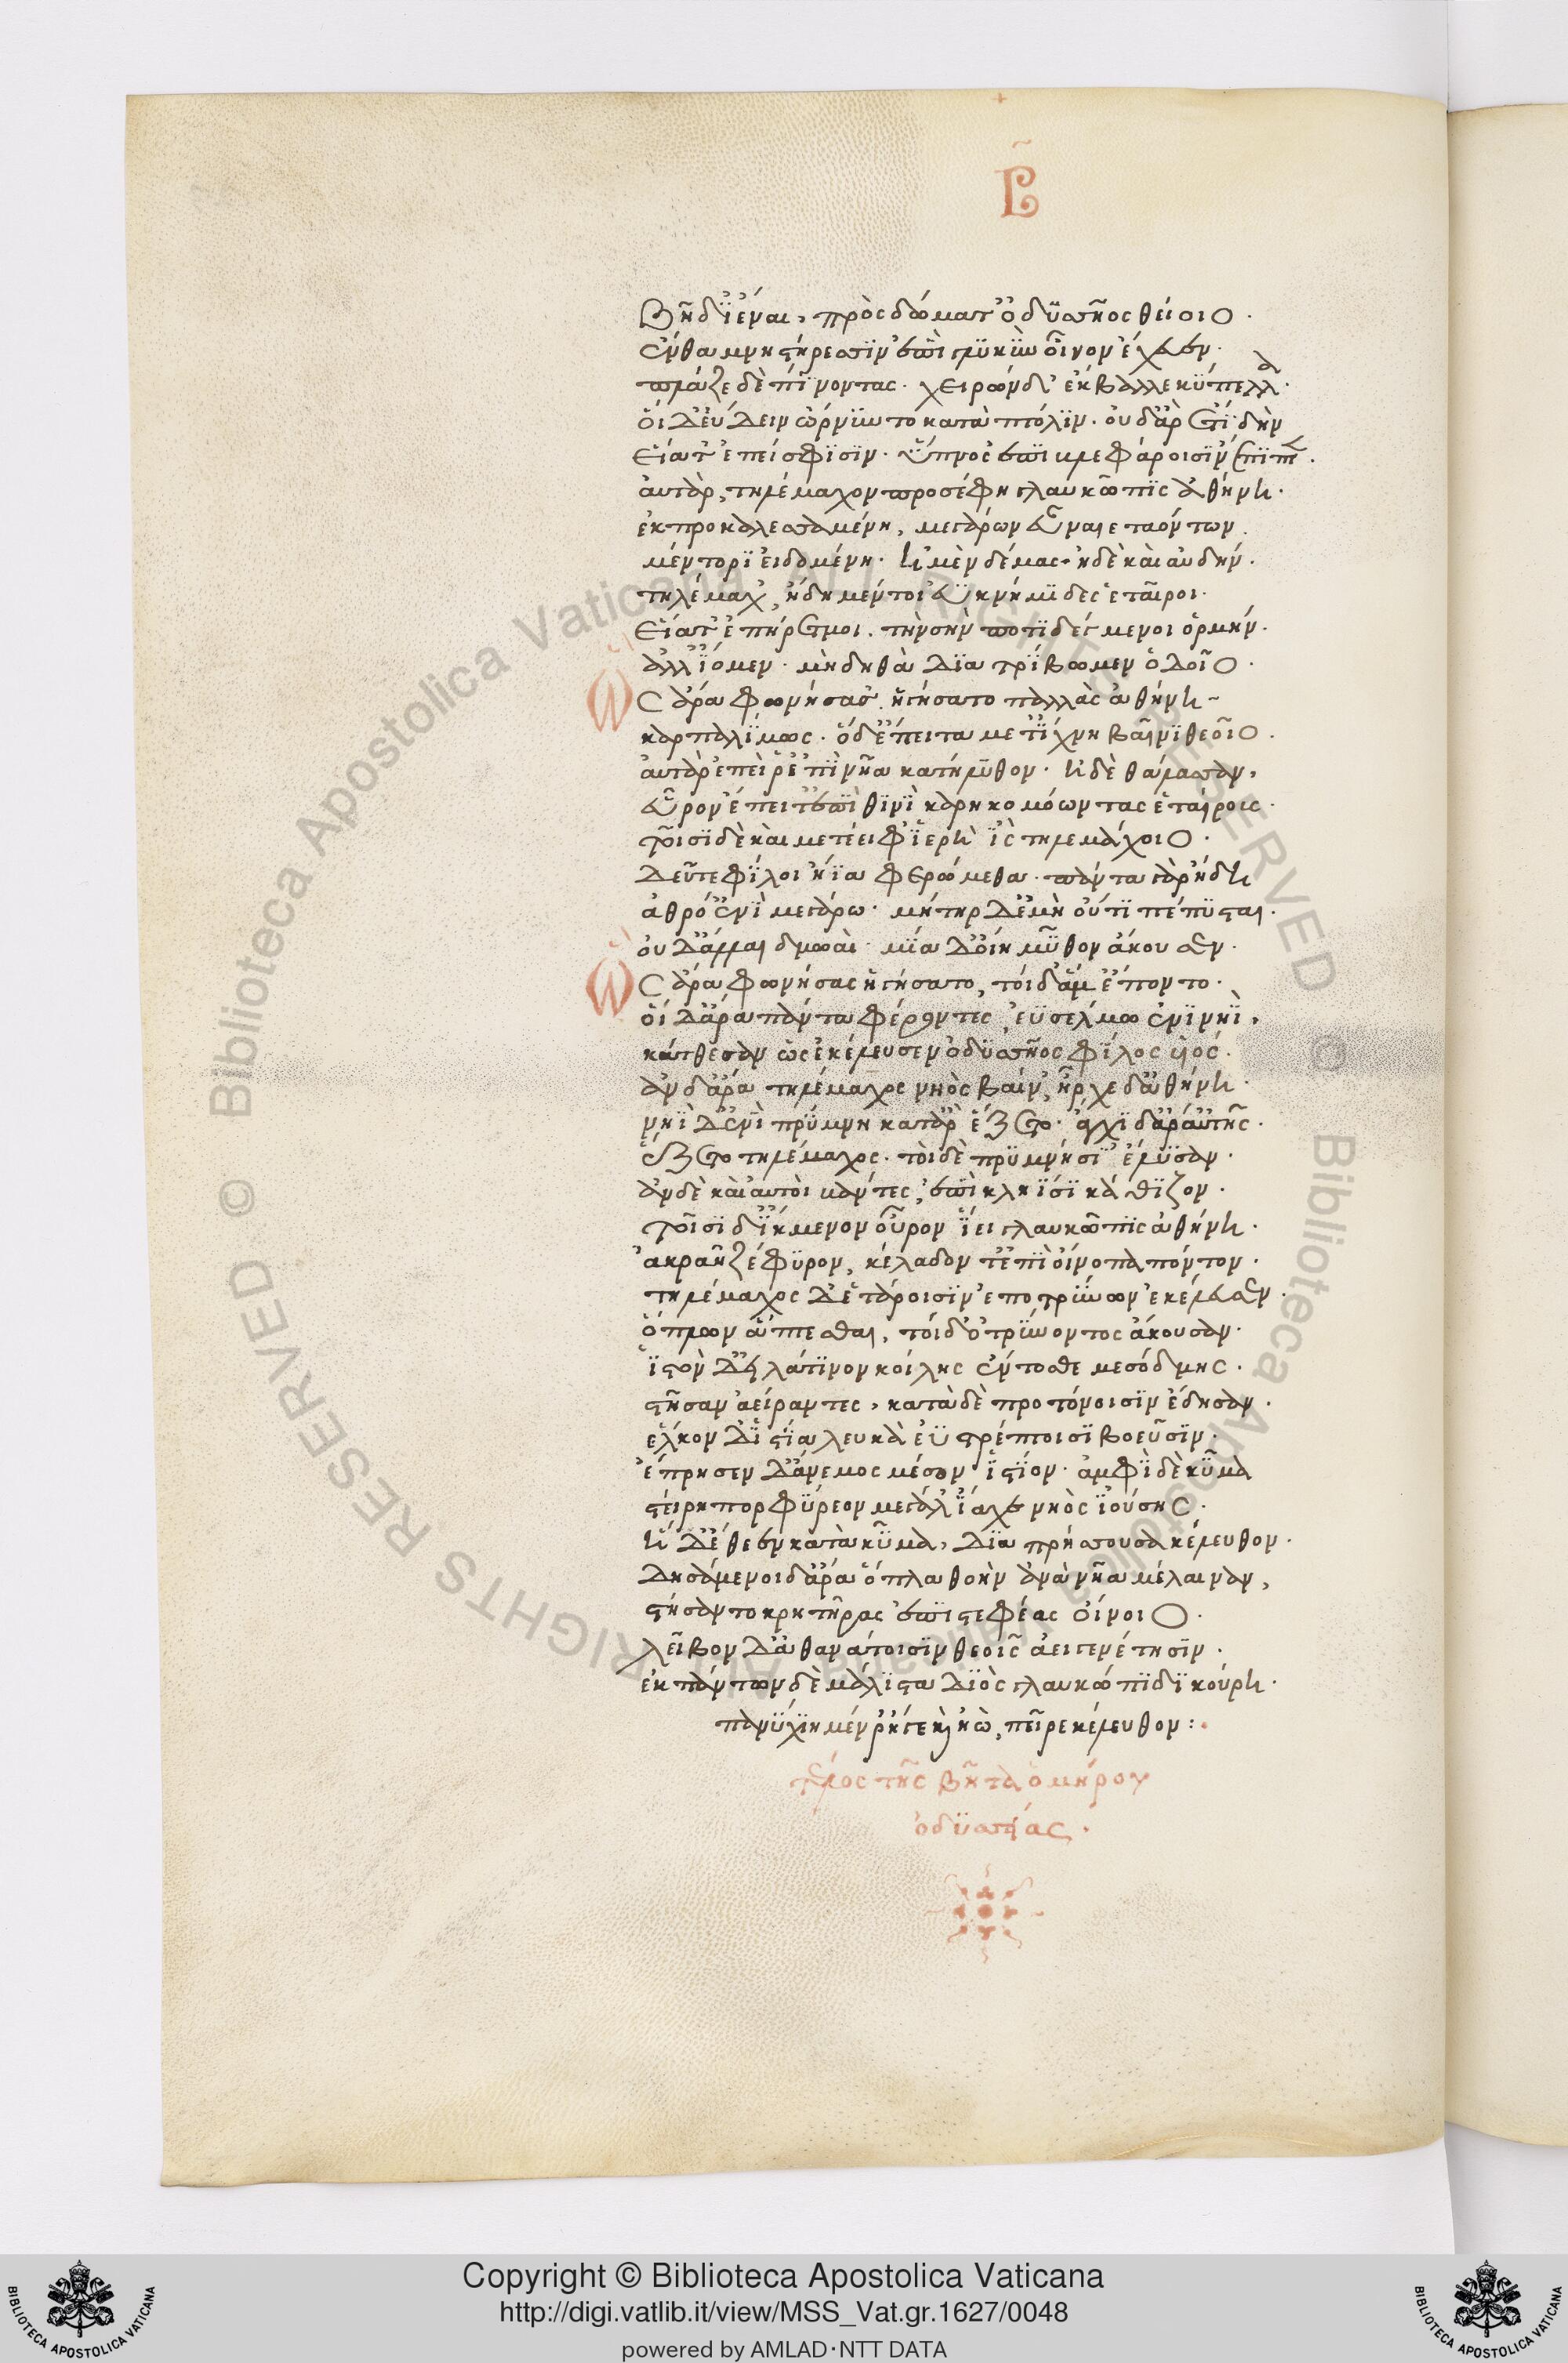 β
Βῆ δ' ἰέναι, πρὸς δώματ' ὀδυσσῆος θείοιο.
ἔνθα μνηστήρεσσιν ἐπὶ γλυκὺν οἶνον ἔχευεν.
πλάζε δὲ πίνοντας. χειρῶν δ' ἔκβαλλε κύπελλα.
οἱ δ' εὕδειν ὤρνυντο κατὰ πτόλιν. οὐδ' ἄρ ἔτι δὴν
εἵατ' ἐπεί σφισιν. ὕπνος ἐπὶ βλεφάροισιν ἔπιπτε.
αὐτὰρ, τηλέμαχον προσέφη γλαυκῶπις ἀθήνη.
ἐκπροκαλεσσαμένη, μεγάρων εὖ ναιεταόντων.
μέντορι εἰδομένη. ἠμὲν δέμας. ἠδὲ καὶ αὐδήν.
τηλέμαχ', ἤδη μέν τοι ἐϋκνήμιδες ἑταῖροι.
εἵατ' ἐπήρετμοι. τὴν σὴν ποτιδέγμενοι ὁρμήν.
ἀλλ' ἴομεν. μὴ δηθὰ διατρίβωμεν ὁδοῖο.
Ὣς ἄρα φωνήσασ' ἡγήσατο παλλὰς ἀθήνη
καρπαλίμως. ὁ δ' ἔπειτα μετ' ἴχνη βαῖνι θεοῖο.
αὐτὰρ ἐπεί ῥ' ἐπὶ νῆα κατήλυθον. ἠδὲ θάλασσαν,
εὗρον ἔπειτ' ἐπὶ θινὶ καρηκομόωντας ἑταίροις.
τοῖσι δὲ καὶ μετέειφ' ἱερὴ ἲς τηλεμάχοιο.
δεῦτε φίλοι ἤϊα φερώμεθα. πάντα γὰρ ἤδη
ἀθρό' ἐνὶ μεγάρω. μήτηρ δ' ἐμὴ οὔτι πέπυσται.
οὐδ' ἄλλαι δμωαὶ. μία δ' οἴη μῦθον ἄκουσεν.
Ὣς ἄρα φωνήσας ἡγήσατο, τοὶ δ' ἅμ' ἕποντο.
οἱ δ' ἄρα πάντα φέροντες, ἐϋσέλμω ἐνὶ νηῒ,
κάτθεσαν ὡς ἐκέλευσεν ὀδυσσῆος φίλος υἱός.
ἂν δ' ἄρα τηλέμαχος νηὸς βαῖν', ἦρχε δ' ἀθήνη.
νηῒ δ' ἐνὶ πρύμνη κατ' ἄρ' ἕζετο. ἄγχι δ' ἄρ' αὐτῆς.
ἕζετο τηλέμαχος. τοὶ δὲ πρυμνήσι' ἔλυσαν.
ἂν δὲ καὶ αὐτοὶ βάντες, ἐπὶ κληῖσι κάθιζον.
τοῖσι δ' ἴκμενον οὖρον ἵει γλαυκῶπις ἀθήνη.
ἀκραῆ ζέφυρον, κέλαδοντ' ἐπὶ οἴνοπα πόντον.
τηλέμαχος δ' ἑτάροισιν ἐποτρύνων ἐκέλευσεν.
ὅπλων ἅπτεσθαι, τοὶ δ' ὀτρύνοντος ἄκουσαν.
ἱστὸν δ' εἰλάτινον κοίλης ἔντοσθε μεσόδμης.
στῆσαν ἀείραντες, κατὰ δὲ προτόνοισιν ἔδησαν.
ἕλκον δ' ἱστία λευκὰ ἐϋστρέπτοισι βοεῦσιν.
ἔπρησεν δ' ἄνεμος μέσον ἱστίον. ἀμφὶ δὲ κῦμα
στείρη πορφύρεον μεγάλ' ἴαχε νηὸς ἰούσης.
ἡ δ' ἔθεεν κατὰ κῦμα, διαπρήσσουσα κέλευθον.
δησάμενοι δ' ἄρα ὅπλα θοὴν ἀνὰ νῆα μέλαιναν,
στήσαντο κρητῆρας ἐπιστεφέας οἴνοιο.
λεῖβον δ' ἀθανάτοισιν θεοῖς ἀειγενέτησιν.
ἐκ πάντων δὲ μάλιστα διὸς γλαυκώπιδι κούρη.
παννυχίη μέν ῥ' ἥγε καὶ ἠῶ, πεῖρε κέλευθον:
τέλος τῆς βῆτα ὁμήρου
ὀδυσσείας.
Biblioteca Apostolica Vaticana © Biblioteca Apostolica Vaticana ALL RIGHTS RESERVED ©
Copyright © Biblioteca Apostolica Vaticana
http://digi.vatlib.it/view/MSS_Vat.gr.1627/0048
powered by AMLAD·NTT DATA
BIBLIOTECA APOSTOLICA VATICANA
BIBLIOTECA APOSTOLICA VATICANA